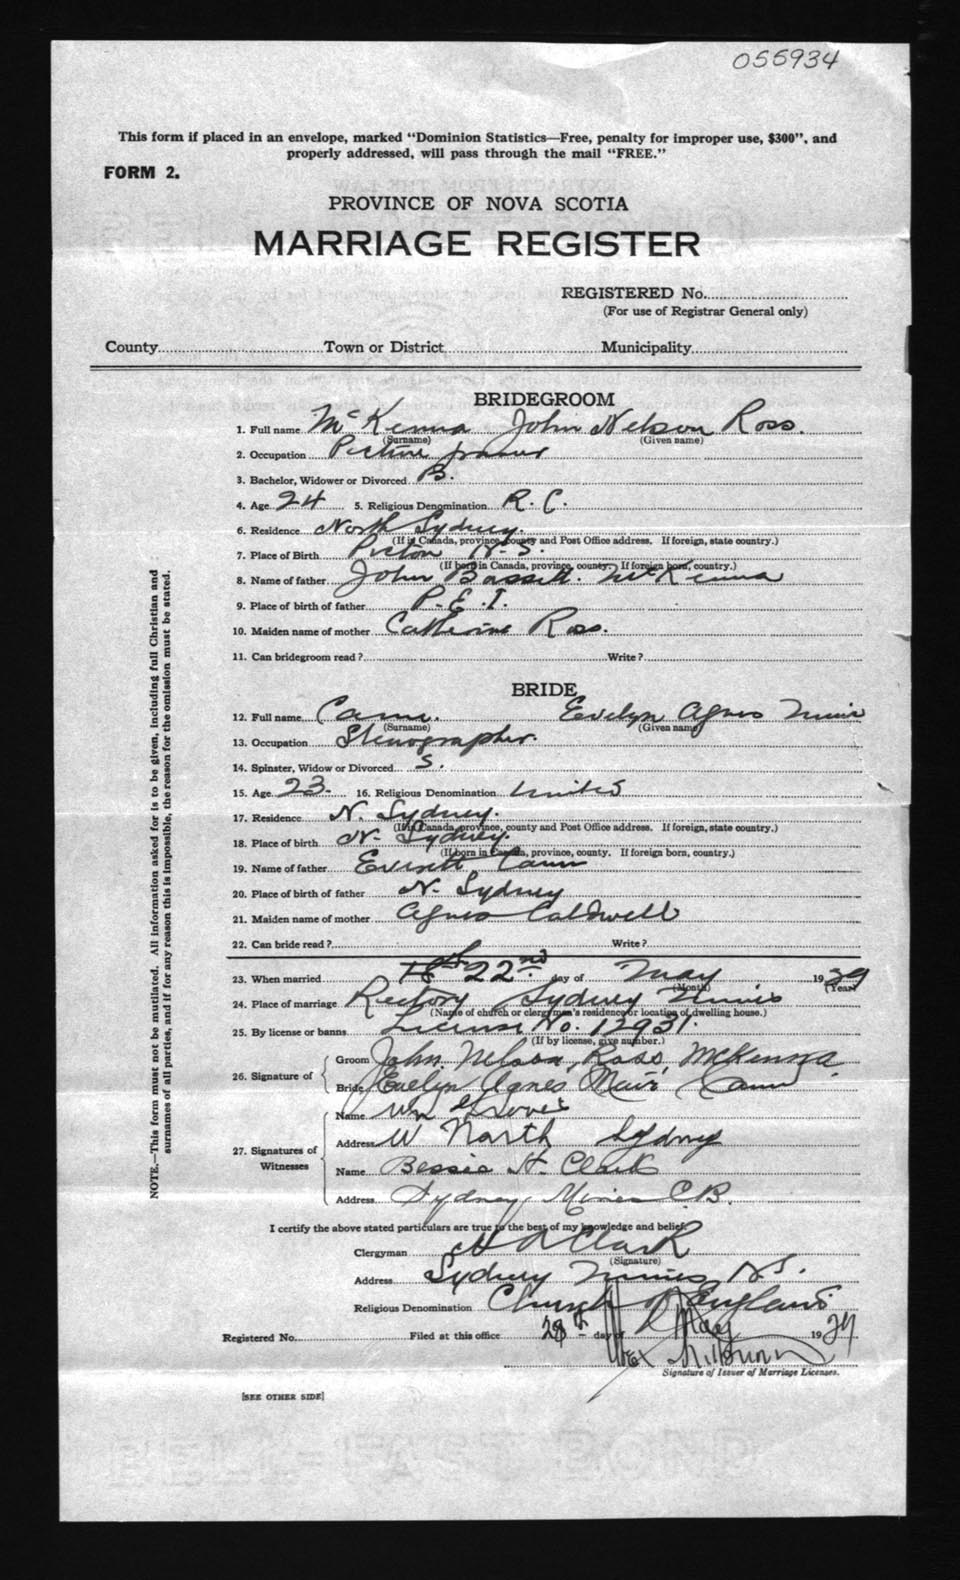 055934
This form if placed in an envelope, marked "Dominion Statistics—Free, penalty for improper use, $300", and
properly addressed, will pass through the mail "FREE."
FORM 2.
PROVINCE OF NOVA SCOTIA
MARRIAGE REGISTER
REGISTERED No.
(For use of Registrar General only)
County Town or District Municipality
BRIDEGROOM
1. Full name McKenna John Nelson Ross.
(Surname) (Given name)
2. Occupation Picture framer
3. Bachelor, Widower or Divorced B.
4. Age 24 5. Religious Denomination R. C.
6. Residence North Sydney.
(If in Canada, province, county and Post Office address. If foreign, state country.)
7. Place of Birth Pictou N.S.
(If born in Canada, province, county. If foreign born, country.)
8. Name of father John Bassett. McKenna
9. Place of birth of father P.E.I.
10. Maiden name of mother Catherine Ross.
11. Can bridegroom read? Write?
BRIDE
12. Full name Cann. Evelyn Agnes Muir
(Surname) (Given name)
13. Occupation Stenographer.
14. Spinster, Widow or Divorced S.
15. Age 23. 16. Religious Denomination United
17. Residence N. Sydney.
(If in Canada, province, county and Post Office address. If foreign, state country.)
18. Place of birth N. Sydney.
(If born in Canada, province, county. If foreign born, country.)
19. Name of father Everett Cann
20. Place of birth of father N. Sydney
21. Maiden name of mother Agnes Caldwell
22. Can bride read? Write?
23. When married 22nd day of May 1929
(Month) (Year)
24. Place of marriage Rectory Sydney Mines
(Name of church or clergyman's residence or location of dwelling house.)
25. By license or banns License No. 12931.
(If by license, give number.)
26. Signature of
Groom John Nelson, Ross, McKenna.
Bride Evelyn Agnes Muir Cann
27. Signatures of Witnesses
Name Wm
Address W North Sydney
Name Bessie H. Clark
Address Sydney Mines C.B.
I certify the above stated particulars are true to the best of my knowledge and belief.
Clergyman Clark
(Signature)
Address Sydney Mines N.S.
Religious Denomination Church of England
Registered No. Filed at this office 28th day of May 1929
Signature of Issuer of Marriage Licenses.
[SEE OTHER SIDE]
NOTE.—This form must not be mutilated. All information asked for is to be given, including full Christian and
surnames of all parties, and if for any reason this is impossible, the reason for the omission must be stated.